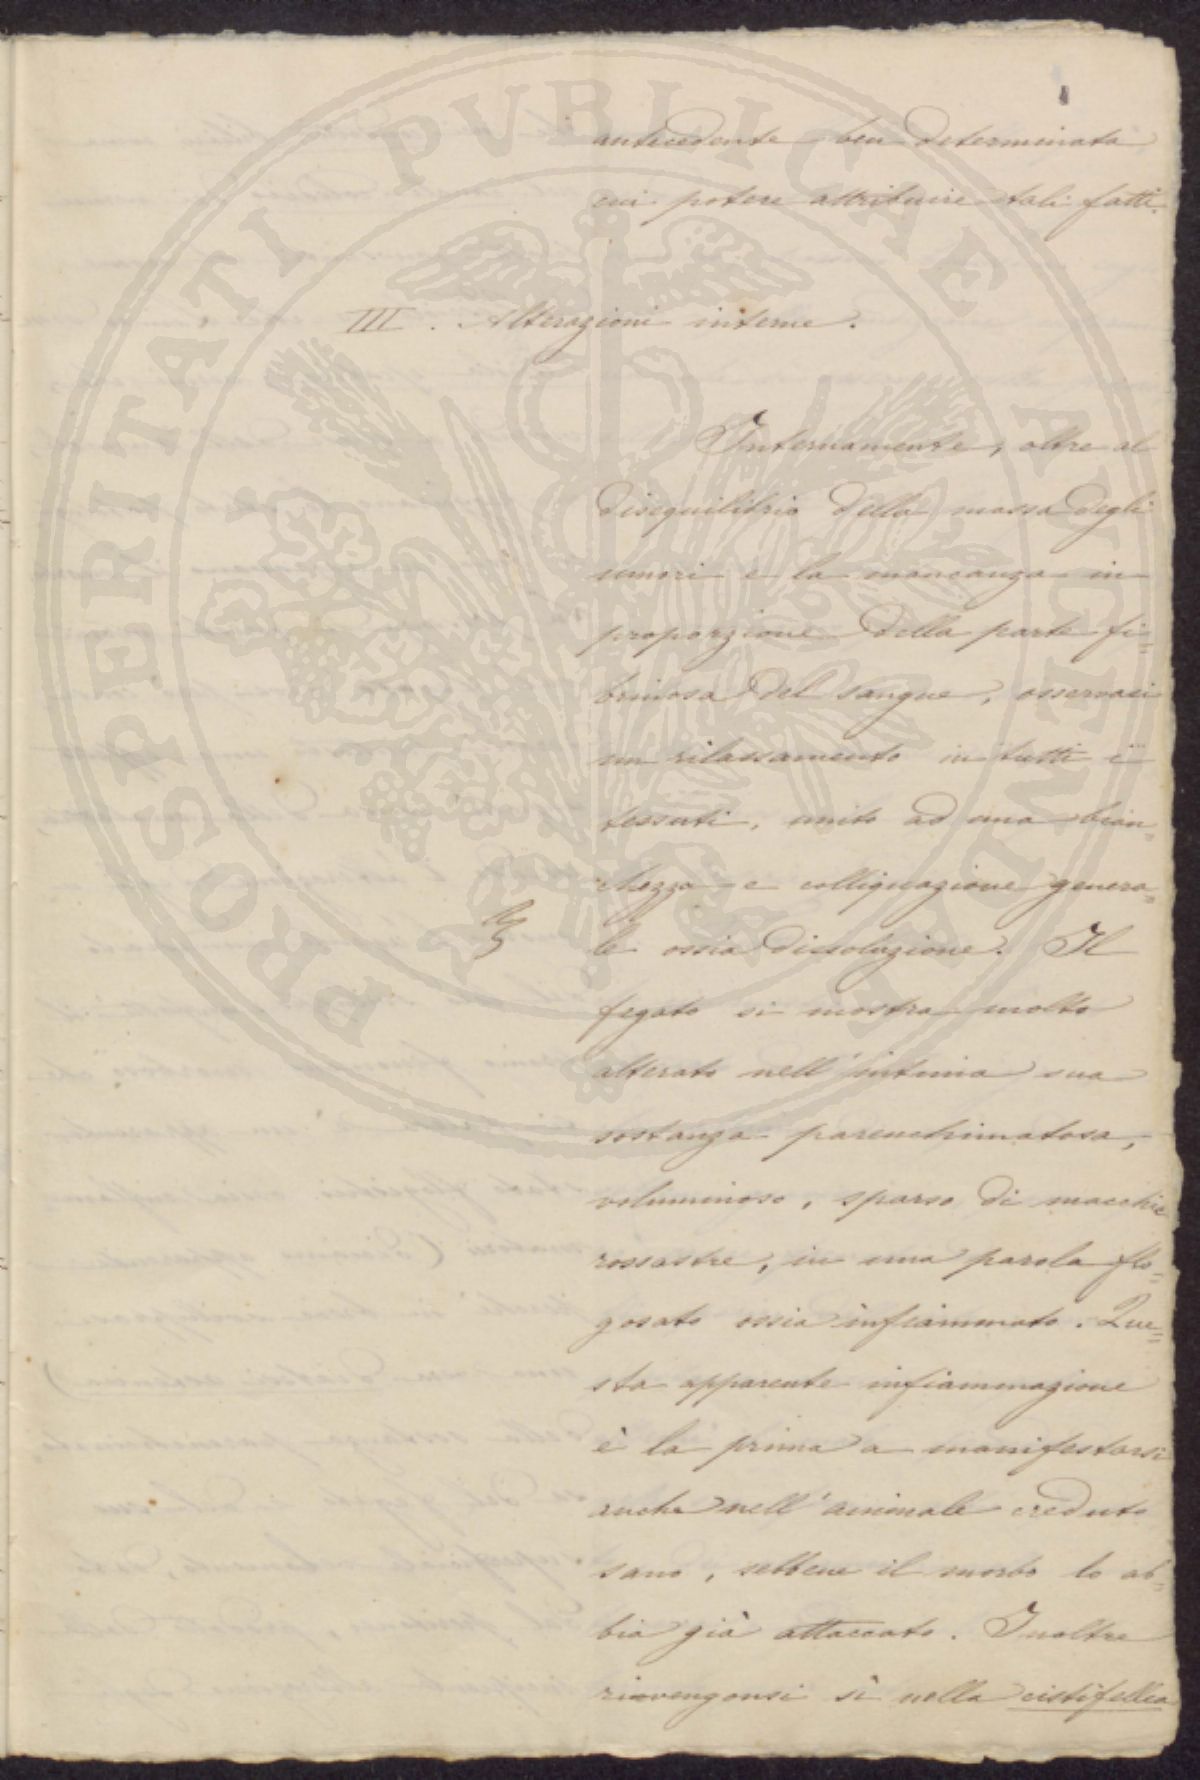 antecedente ben determinata
cui potere attribuire tali fatti.
III. Alterazioni interne.
Internamente, oltre al
disequilibrio della massa degli
umori e la mancanza in
proporzione della parte fi=
brinosa del sangue, osservasi
un rilassamento in tutti i
tessuti, unito ad una bian=
chezza e colliquazione genera=
le ossia dissoluzione. Il
fegato si mostra molto
alterato nell'intima sua
sostanza parenchimatosa,
voluminoso, sparso di macchie
rossastre, in una parola flo=
gosato ossia infiammato. Que=
sta apparente infiammazione
è la prima a manifestarsi
anche nell'animale creduto
sano, sebbene il morbo lo ab=
bia già attaccato. Inoltre
rinvengonsi sì nella cistifellea
PROSPERITATI PVBLICAE AVGENDAE